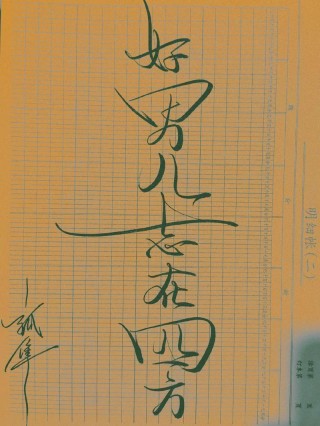 好男儿志在四方
孤隼
明细帐(二)